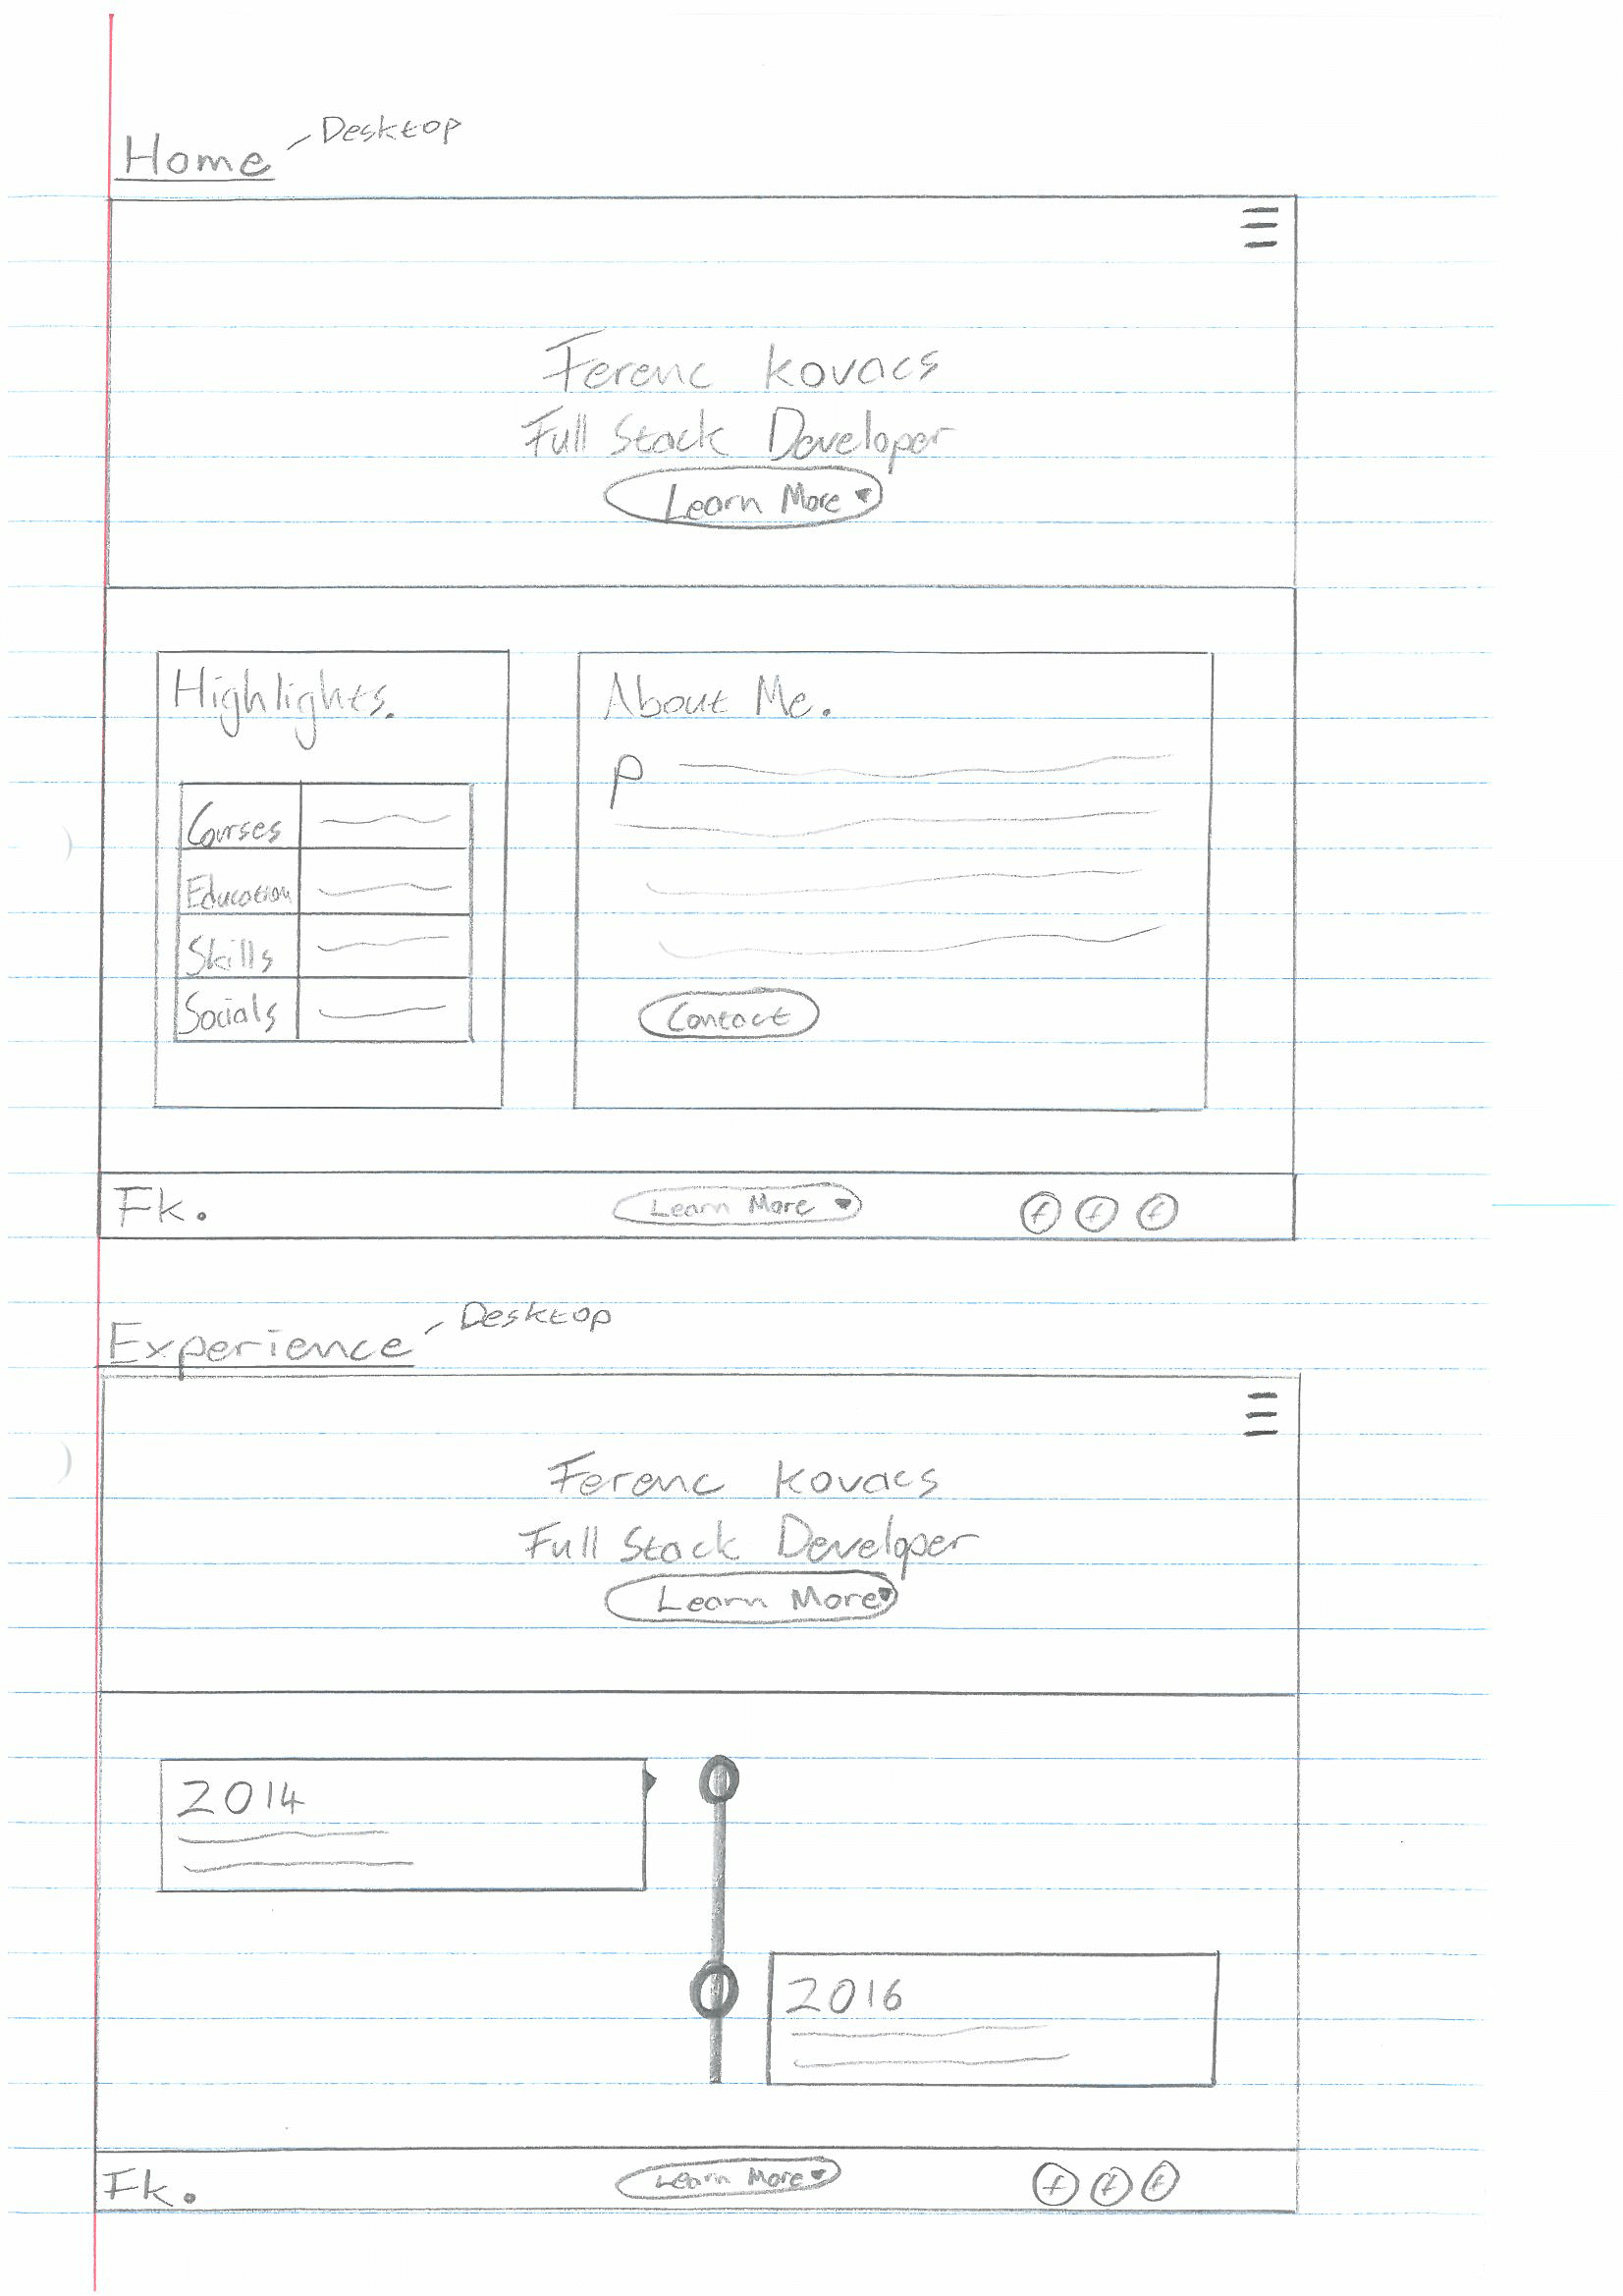 Home - Desktop
Ferenc Kovacs
Full Stack Developer
Learn More
Highlights.
Courses
Education
Skills
Socials
About Me.
P
Contact
Fk.
Learn More
f f f
Experience - Desktop
Ferenc Kovacs
Full Stack Developer
Learn More
2014
2016
Fk.
Learn More
f f f